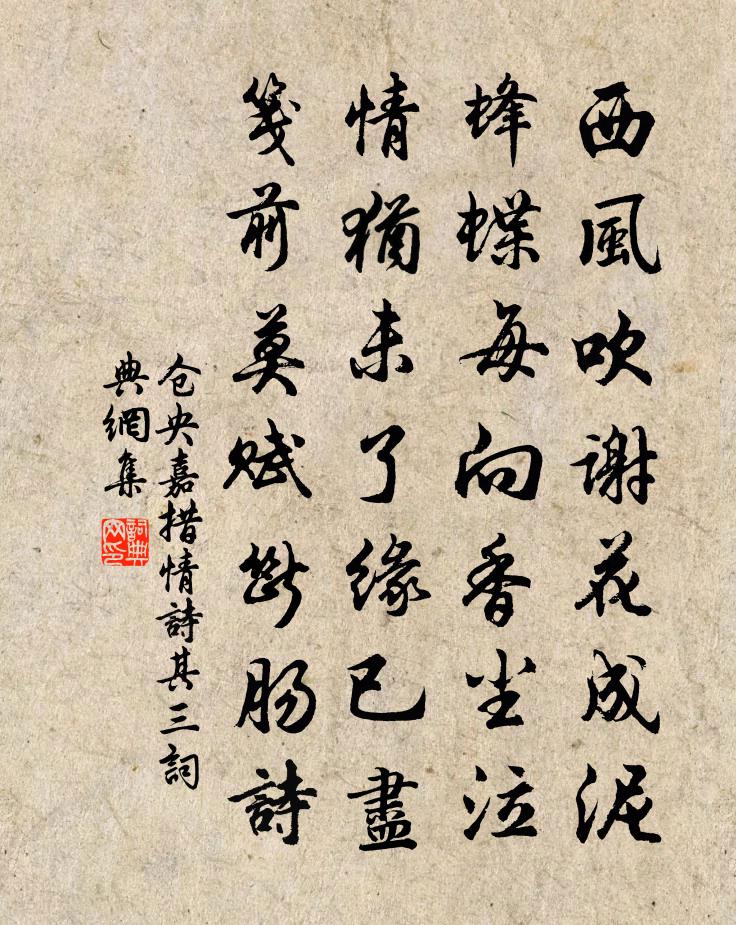 西風吹謝花成泥
蜂蝶每向香尘泣
情猶未了緣已盡
箋前莫賦斷腸詩
仓央嘉措情詩其三詞
典網集
詞典
网印